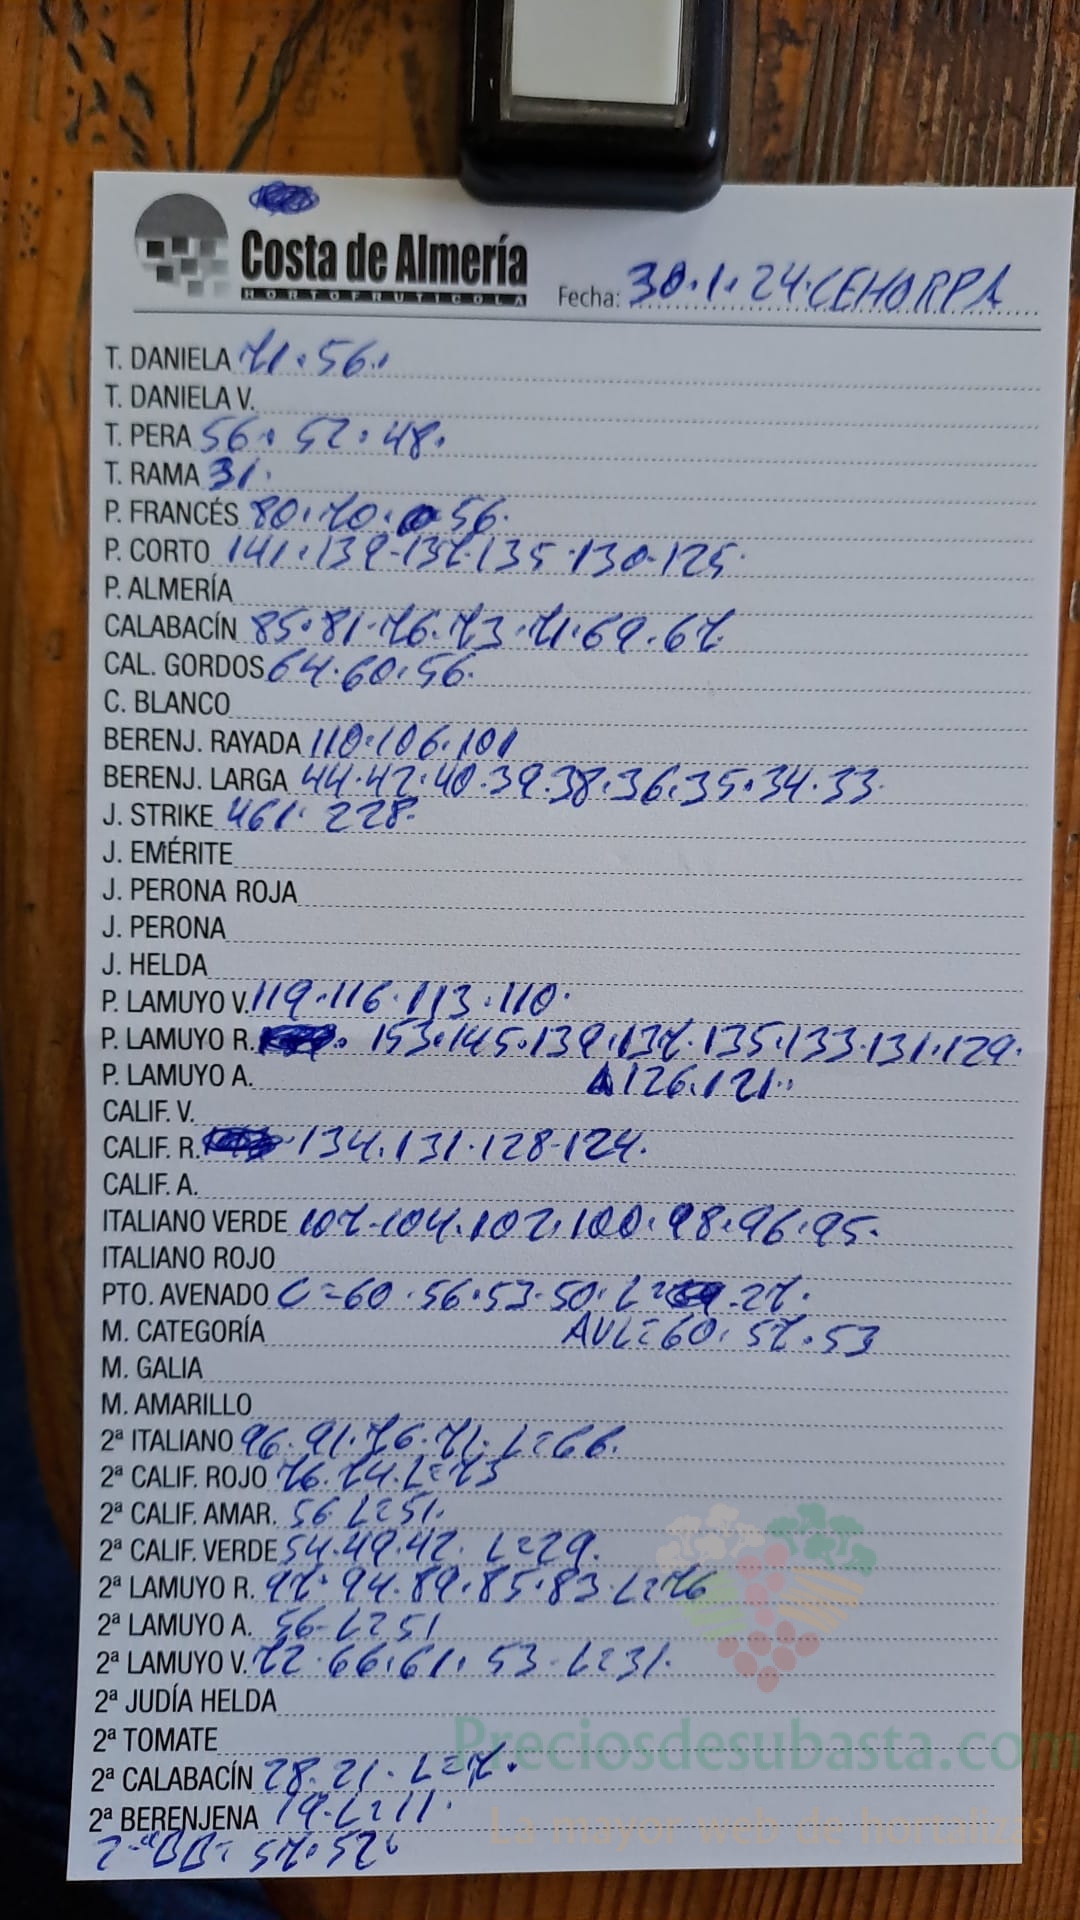 Costa de Almería
HORTOFRUTICOLA
Fecha: 30.1.24.CEHORPA
T. DANIELA 71.56.
T. DANIELA V.
T. PERA 56. 52.48.
T. RAMA 31.
P. FRANCÉS 80.70. 56.
P. CORTO 141.139-137.135.130-125.
P. ALMERÍA
CALABACÍN 85.81.76.73.71.69.67.
CAL. GORDOS 64.60.56.
C. BLANCO
BERENJ. RAYADA 110.106.101
BERENJ. LARGA 44.42.40.39.38.36.35.34.33.
J. STRIKE 461. 228.
J. EMÉRITE
J. PERONA ROJA
J. PERONA
J. HELDA
P. LAMUYO V. 119.116.113.110.
P. LAMUYO R. 153.145.139.137.135.133.131.129.
P. LAMUYO A. 126.121..
CALIF. V.
CALIF. R. 134.131.128-124.
CALIF. A.
ITALIANO VERDE 107-104.102.100.98.96.95.
ITALIANO ROJO
PTO. AVENADO C=60.56.53.50. L= .27.
M. CATEGORÍA AVL=60.57.53
M. GALIA
M. AMARILLO
2ª ITALIANO 96.91.76.71. L=66.
2ª CALIF. ROJO 76.74.L=73
2ª CALIF. AMAR. 56 L=51.
2ª CALIF. VERDE 54.49.42. L=29.
2ª LAMUYO R. 97.94.89.85.83.L=76
2ª LAMUYO A. 56-L=51
2ª LAMUYO V. 72.66.61. 53.L=31.
2ª JUDÍA HELDA
2ª TOMATE
2ª CALABACÍN 28.21. L=7.
2ª BERENJENA 19-L=11.
2-ªBB= 57.52.
Preciosdesubasta.com
La mayor web de hortalizas